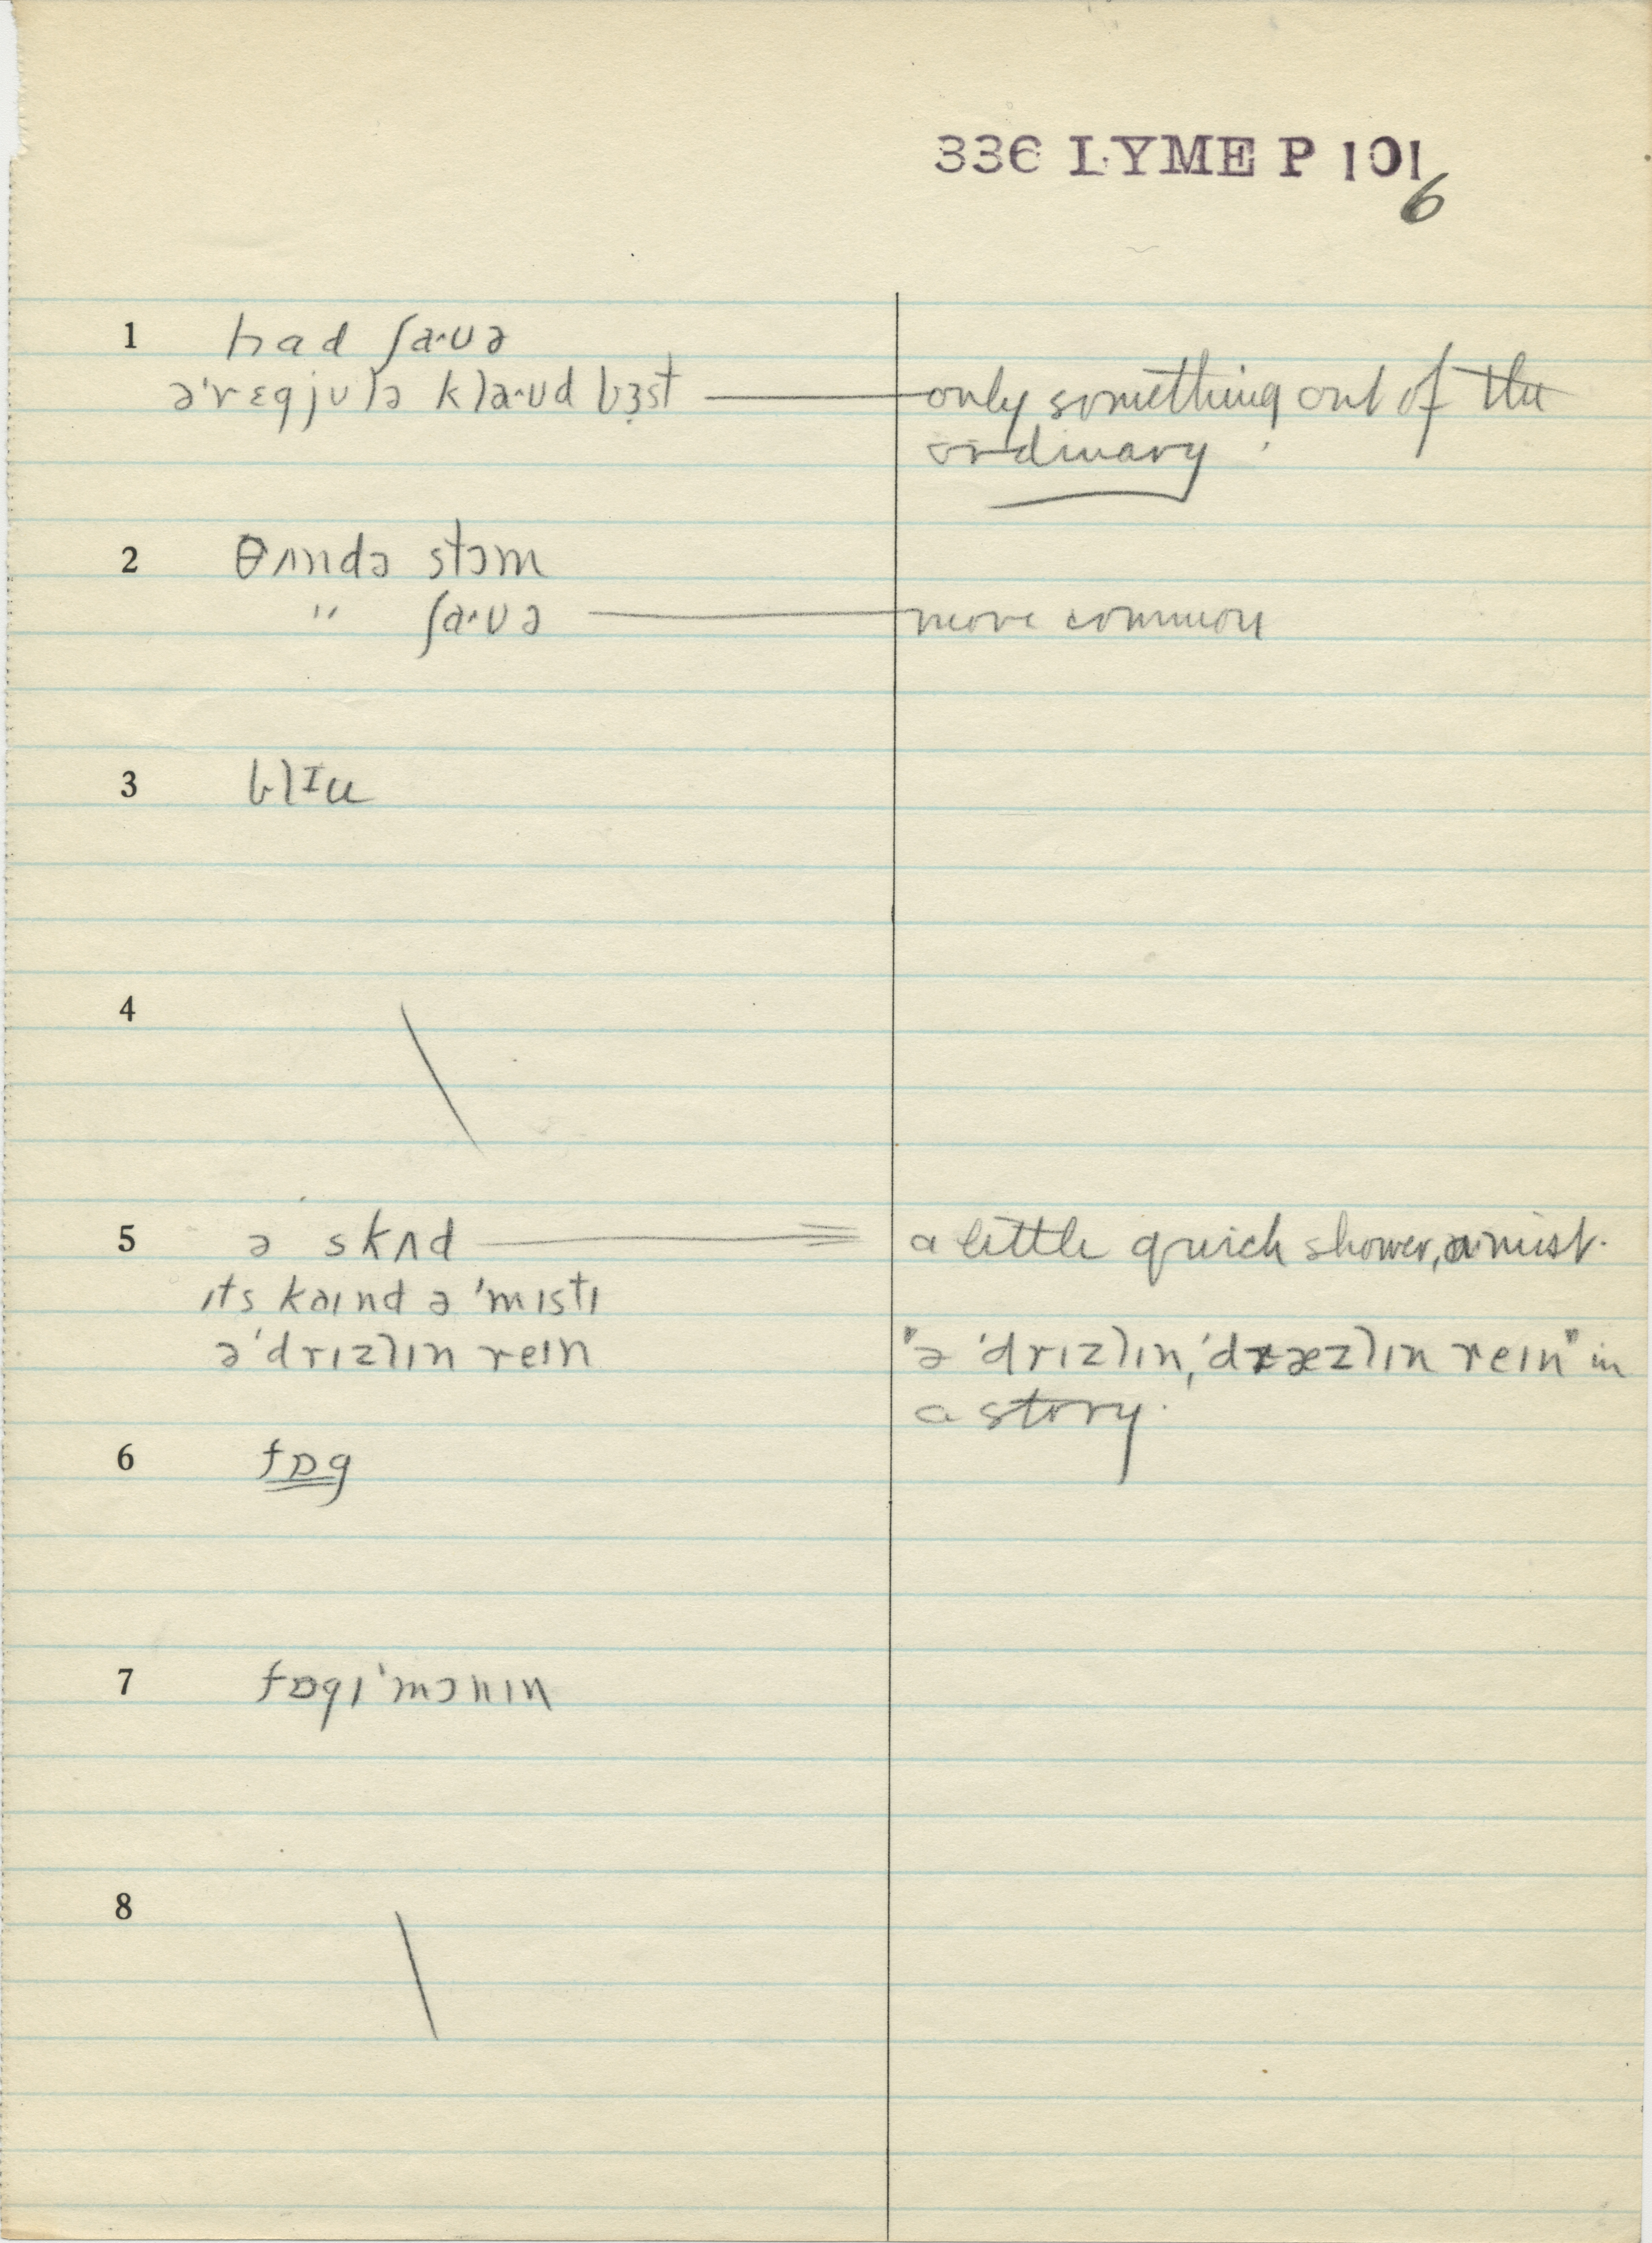 336 LYME P 101
6
1 had ʃa·ʊə
ə'rɛgjʊlə kla·ʊd bɜst only something out of the
ordinary
2 θʌndə stɔm
" ʃa·ʊə more common
3 blɪu
4
5 ə skʌd a little quick shower, a mist.
ɪts kəɪnd ə 'mɪstɪ
ə'drɪzlɪn reɪn "ə 'drɪzlɪn, 'dræzlɪn reɪn" in
a story.
6 fɒg
7 fɒgɪ'mɔnɪn
8